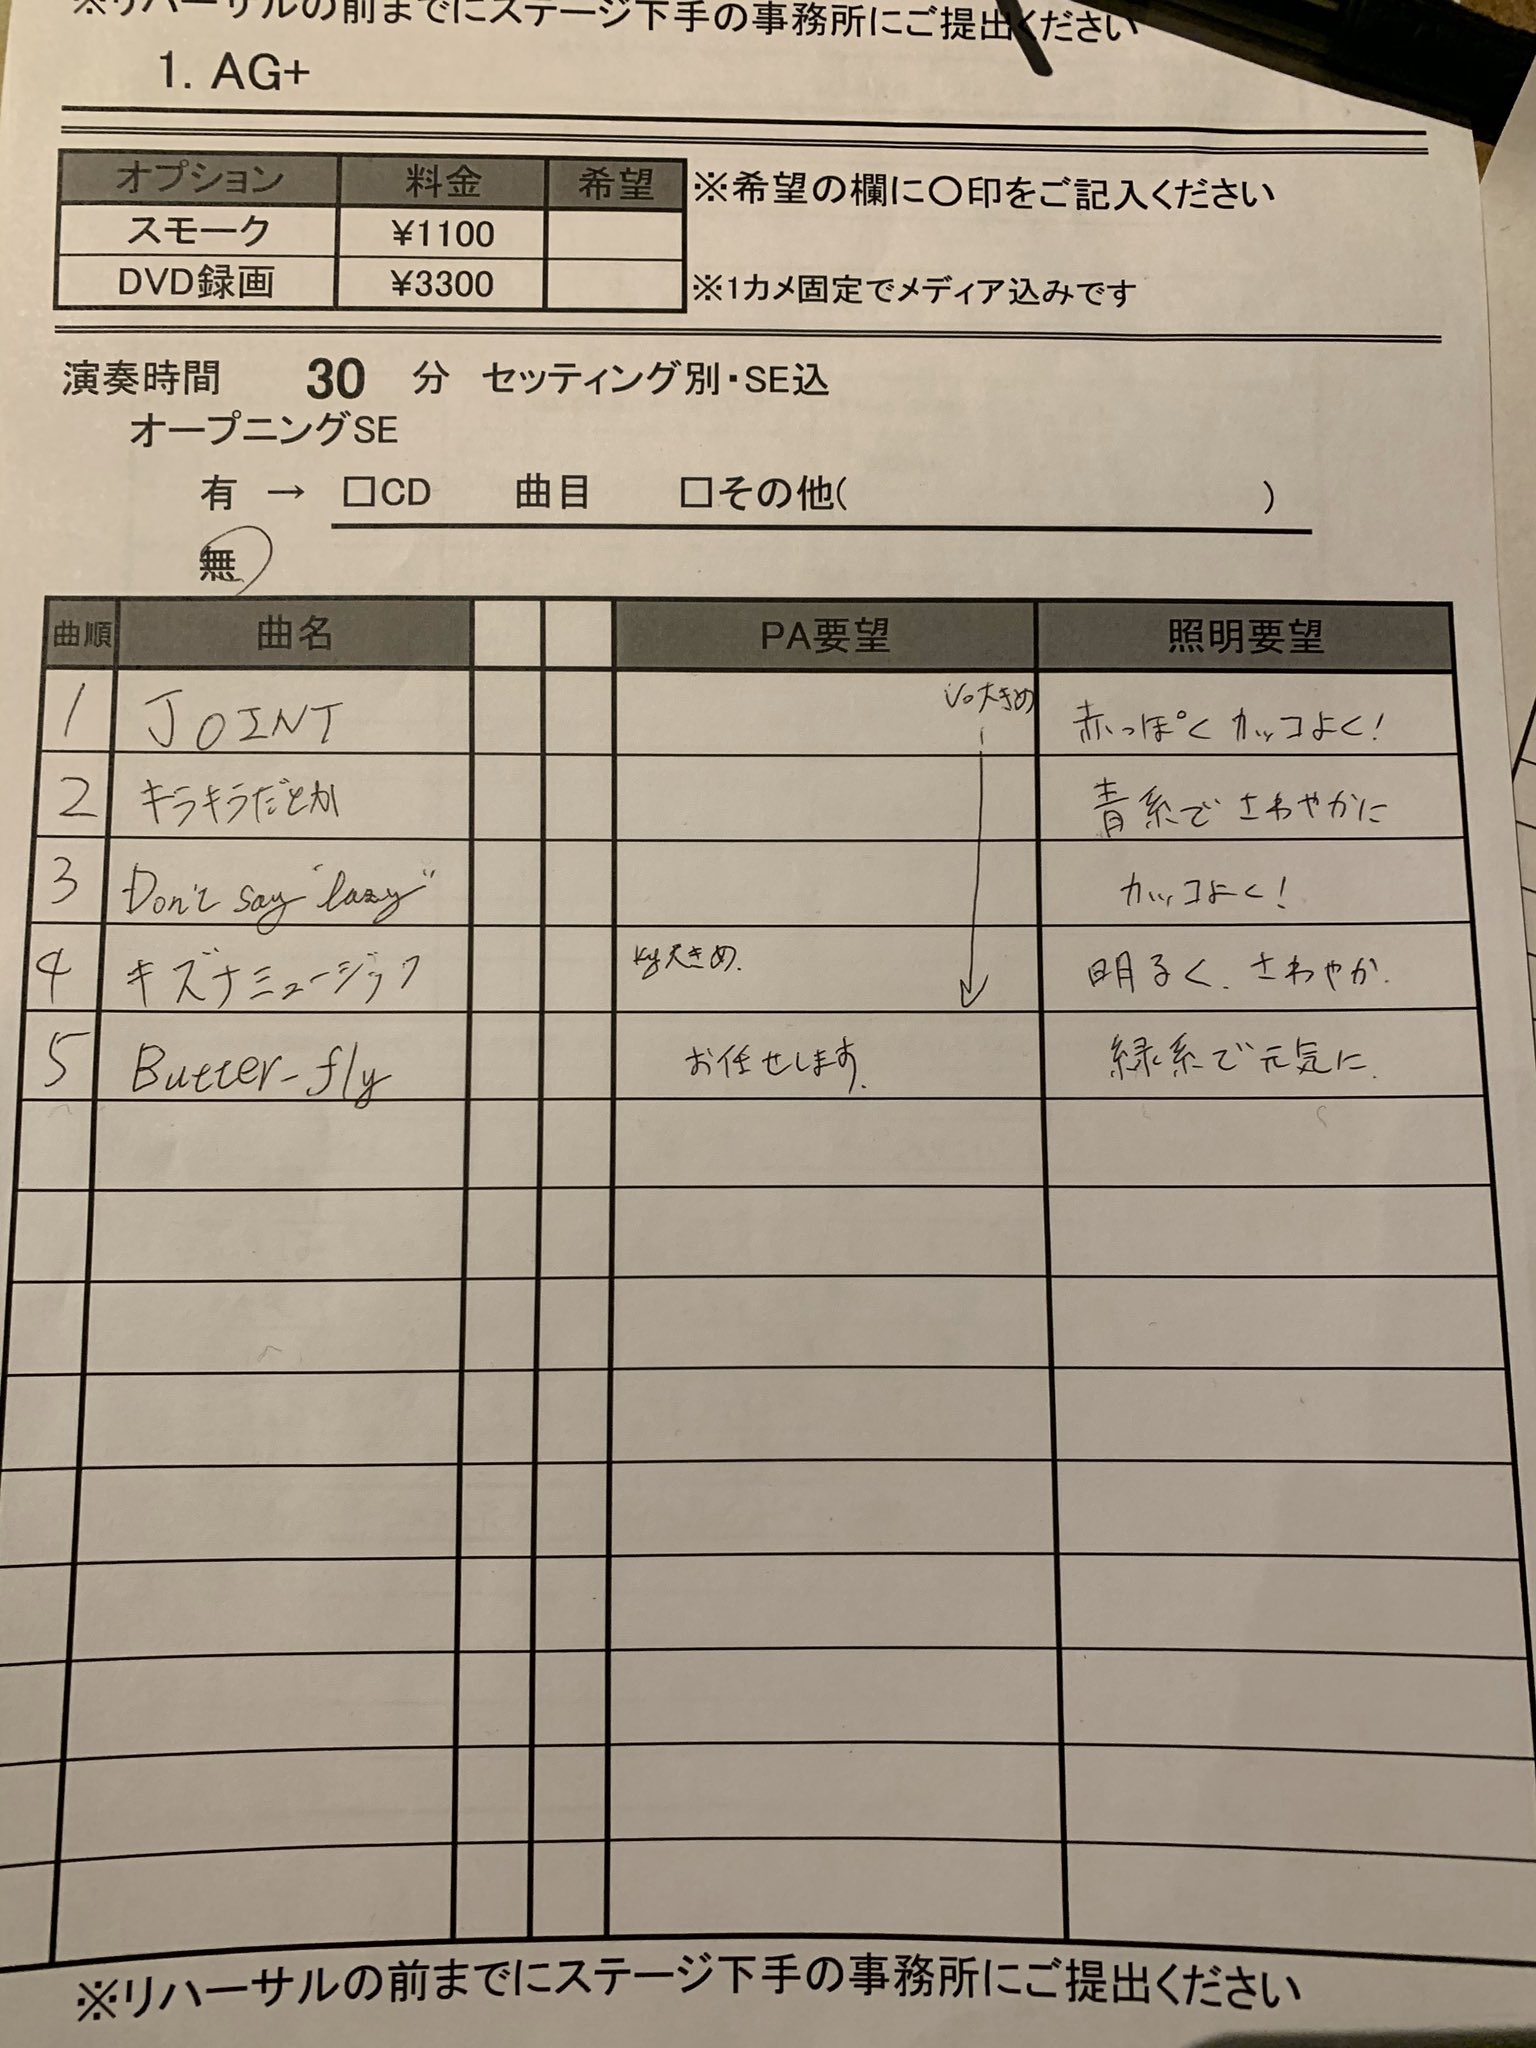 ※リハーサルの前までにステージ下手の事務所にご提出ください
1. AG+
オプション 料金 希望 ※希望の欄に〇印をご記入ください
スモーク ¥1100
DVD録画 ¥3300 ※1カメ固定でメディア込みです
演奏時間 30 分 セッティング別・SE込
オープニングSE
有 → □CD 曲目 □その他( )
無
曲順 曲名 PA要望 照明要望
1 JOINT Vo大きめ 赤っぽくカッコよく!
2 キラキラだとか 青系でさわやかに
3 Don't say "lazy" カッコよく!
4 キズナミュージック Ky大きめ. 明るく、さわやか.
5 Butter-fly お任せします. 緑系で元気に.
※リハーサルの前までにステージ下手の事務所にご提出ください